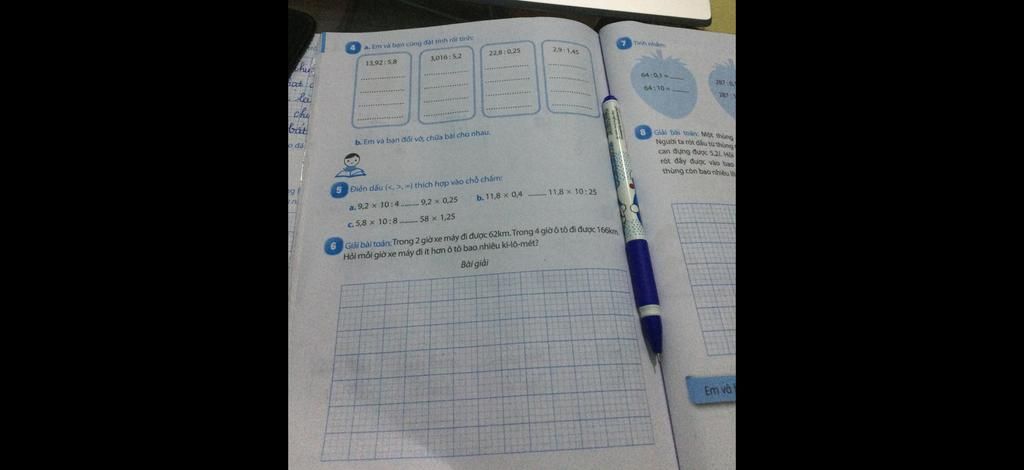 4 a. Em và bạn cùng đặt tính rồi tính:
13,92 : 5,8
3,016 : 5,2
22,8 : 0,25
2,9 : 1,45
b. Em và bạn đổi vở, chữa bài cho nhau.
5 Điền dấu (<, >, =) thích hợp vào chỗ chấm:
a. 9,2 × 10 : 4 ........ 9,2 × 0,25 b. 11,8 × 0,4 ........ 11,8 × 10 : 25
c. 5,8 × 10 : 8 ........ 58 × 1,25
6 Giải bài toán: Trong 2 giờ xe máy đi được 62km. Trong 4 giờ ô tô đi được 166km.
Hỏi mỗi giờ xe máy đi ít hơn ô tô bao nhiêu ki-lô-mét?
Bài giải
7 Tính nhẩm:
64 : 0,1 = ____
64 : 10 = ____
287 : 0,
287 :
8 Giải bài toán: Một thùng
Người ta rót dầu từ thùng
can đựng được 5,2l. Hỏi
rót đầy được vào bao
thùng còn bao nhiêu lí
Em và